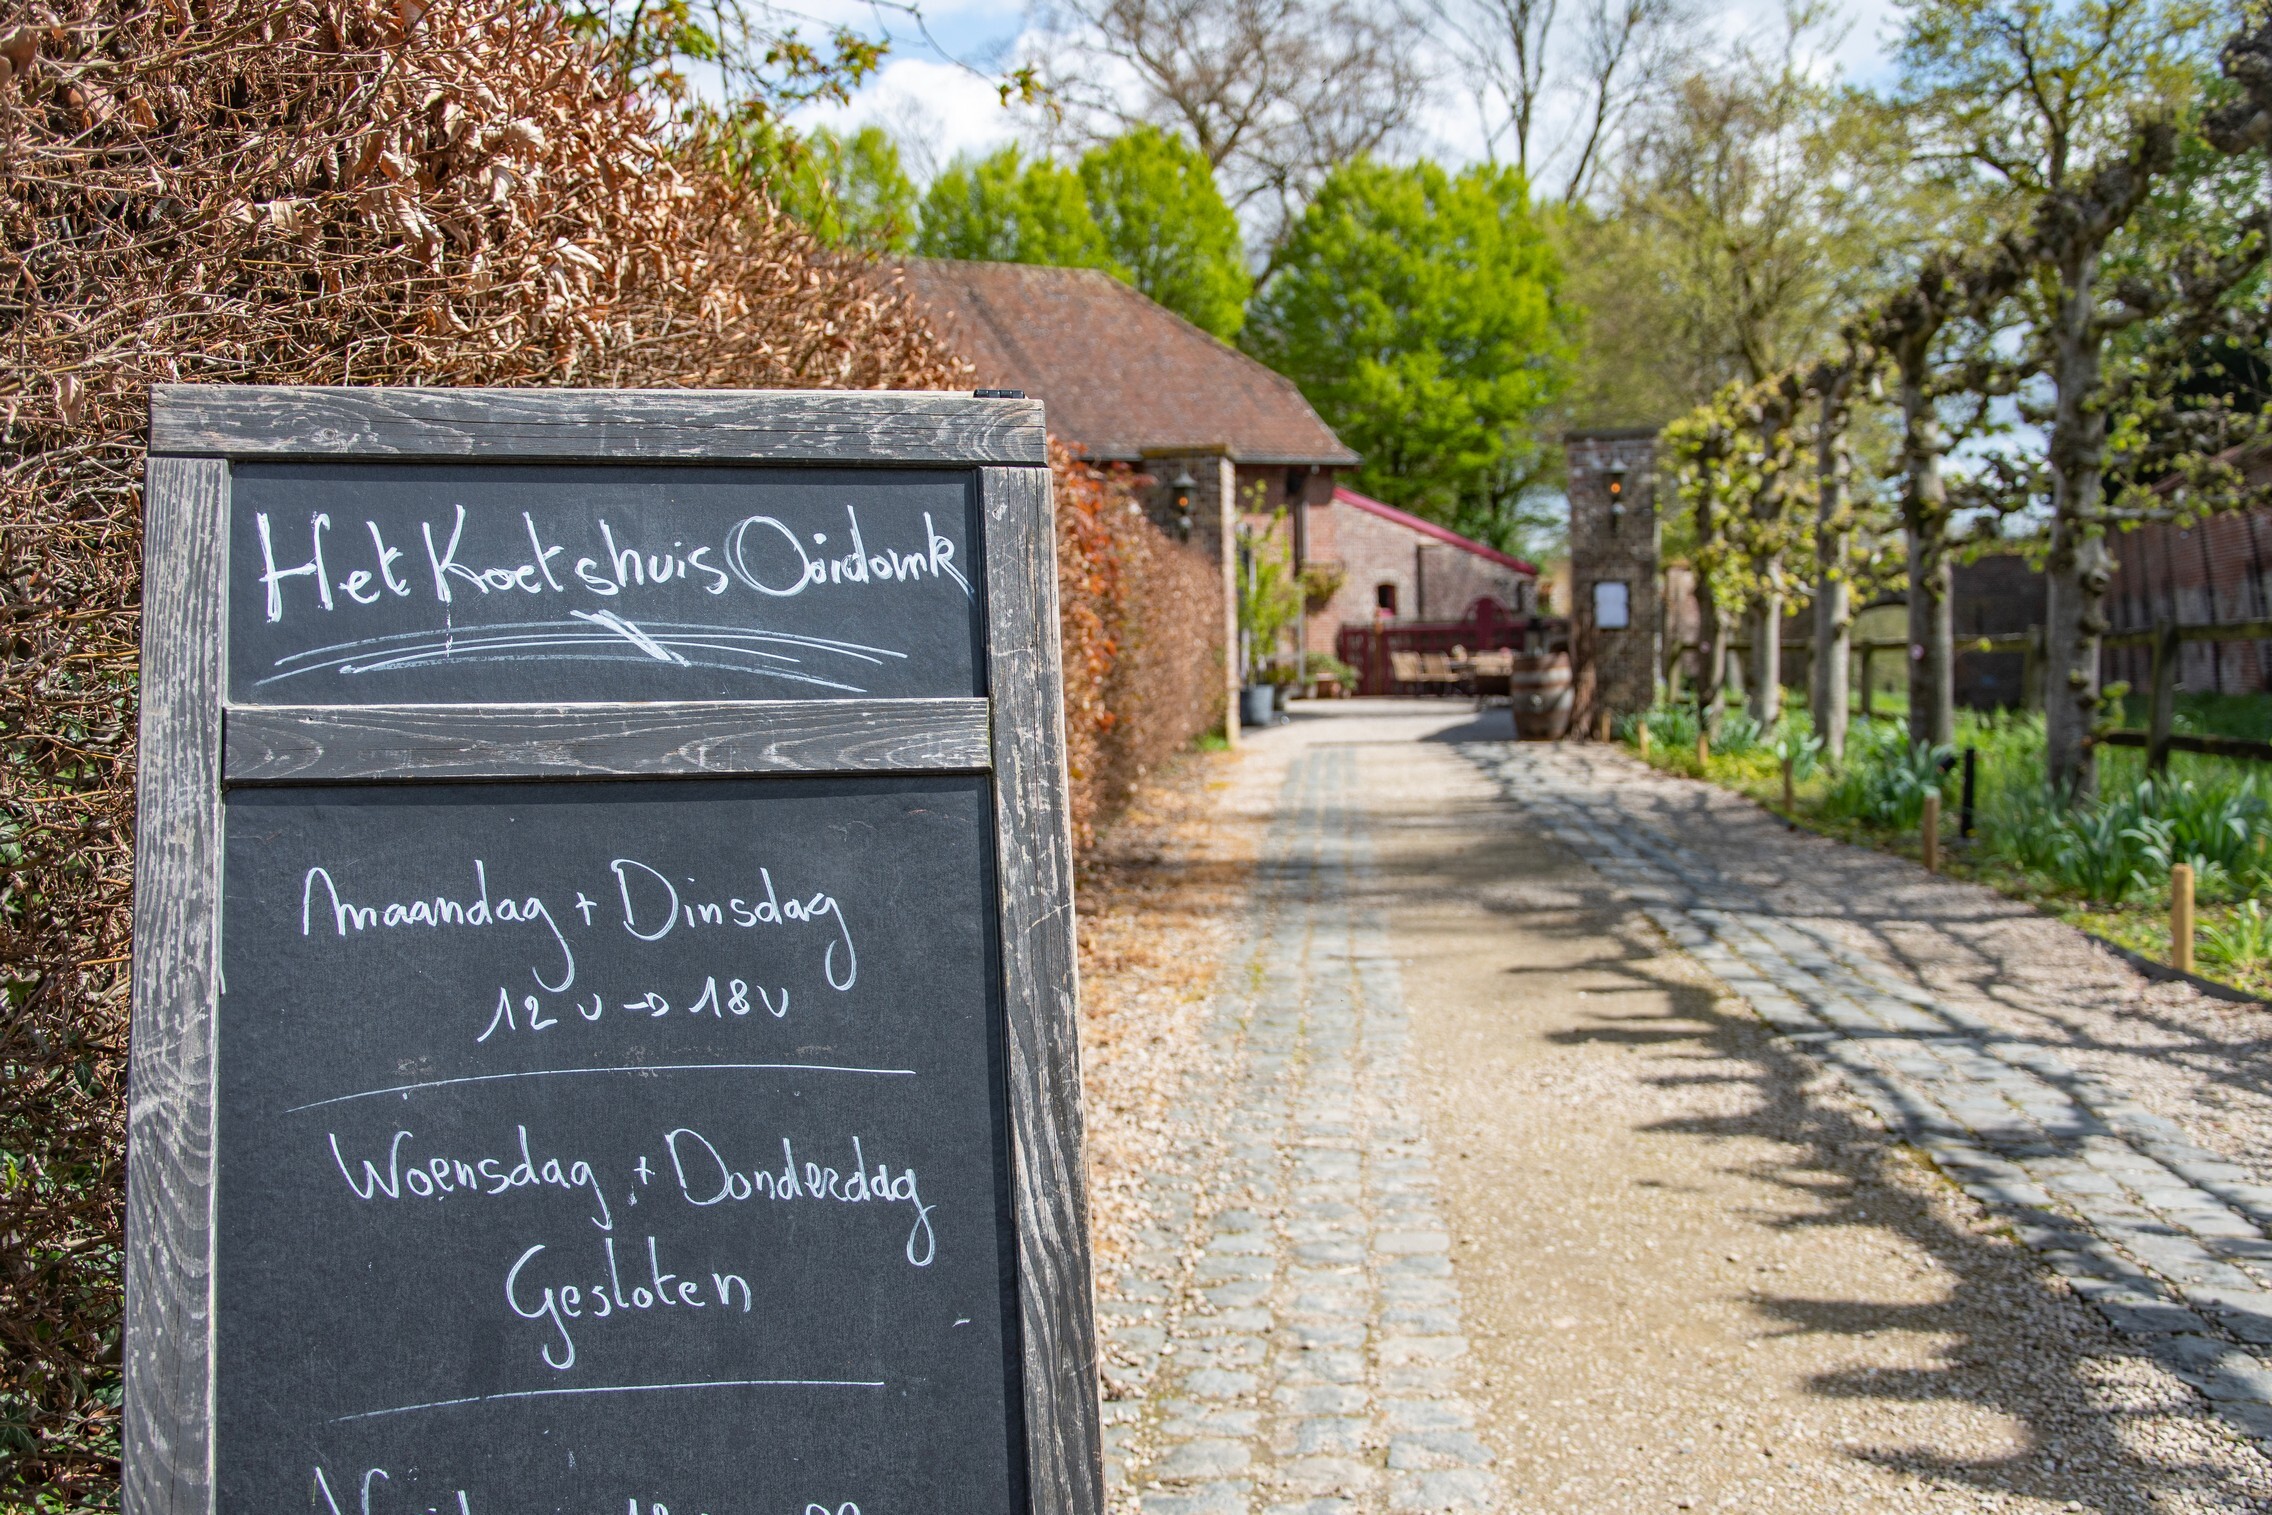 Het Koetshuis Ooidonk
Maandag + Dinsdag
12u → 18u
Woensdag + Donderdag
Gesloten